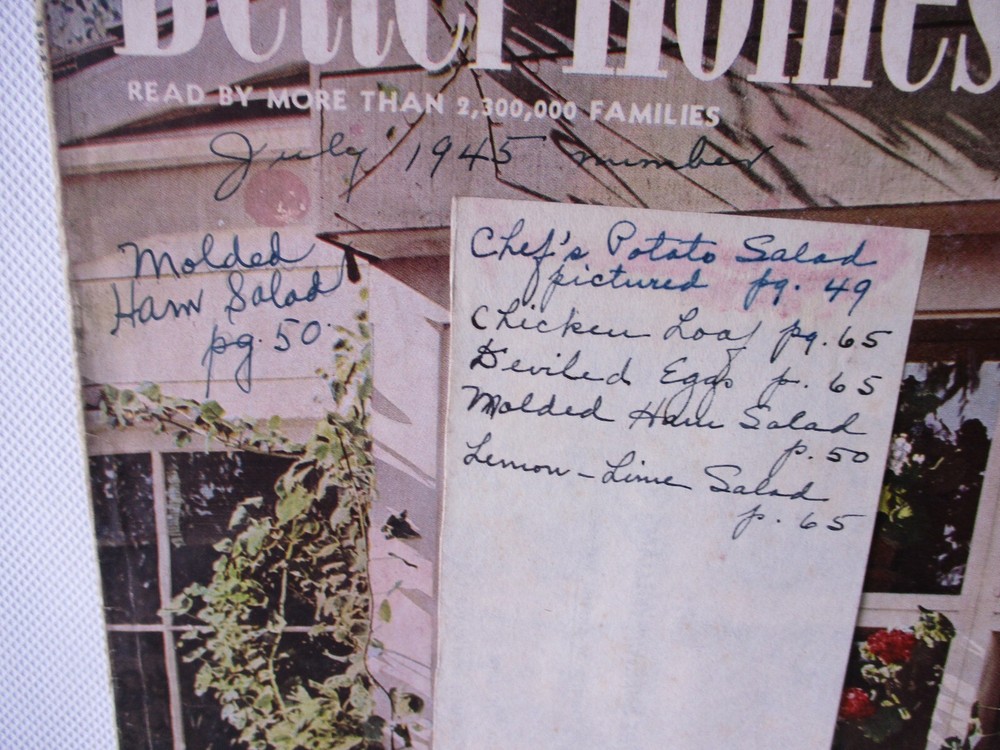 Better Homes
READ BY MORE THAN 2,300,000 FAMILIES
July 1945 number
Molded
Ham Salad
pg. 50.
Chef's Potato Salad
pictured pg. 49
Chicken Loaf pg. 65
Deviled Eggs p. 65
Molded Ham Salad
p. 50
Lemon-Lime Salad
p. 65